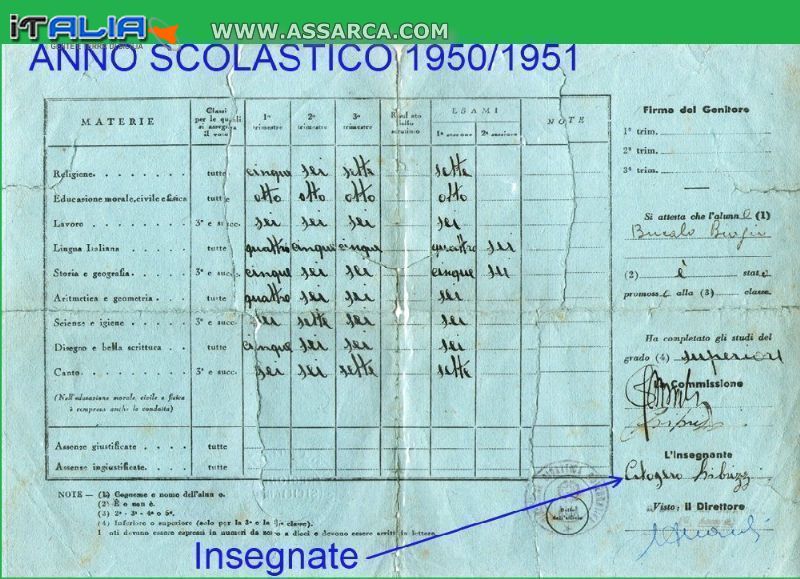 iTALIA
WWW.ASSARCA.COM
ANNO SCOLASTICO 1950/1951
MATERIE Classi per le quali si assegna il voto 1º trimestre 2º trimestre 3º trimestre Risultato dello scrutinio ESAMI 1ª sessione 2ª sessione NOTE
Religione. tutte cinque sei sette sette
Educazione morale, civile e fisica tutte otto otto otto otto
Lavoro 3ª e succ. sei sei sei sei
Lingua Italiana tutte quattro cinque cinque quattro sei
Storia e geografia. 3ª e succ. cinque sei sei cinque sei
Aritmetica e geometria tutte quattro sei sei sei
Scienze e igiene 3ª e succ. sei sette sei sei
Disegno e bella scrittura tutte cinque sei sei sei
Canto 3ª e succ. sei sei sette sette
(Nell'educazione morale, civile e fisica
è compresa anche la condotta)
Assenze giustificate tutte
Assenze ingiustificate. tutte
NOTE — (1) Cognome e nome dell'alun o.
(2) È o non è.
(3) 2ª - 3ª - 4ª o 5ª.
(4) Inferiore o superiore (solo per la 3ª e la 5ª classe).
I voti devono essere espressi in numeri da zero a dieci e devono essere scritti in lettere.
Bollo dell'ufficio
Firma del Genitore
1º trim.
2º trim.
3º trim.
Si attesta che l'alunno (1)
Bucalo Biagio
(2) è stato
promosso alla (3) classe.
Ha completato gli studi del
grado (4) superiore
La Commissione
L'Insegnante
Calogero
Visto: Il Direttore
Insegnate